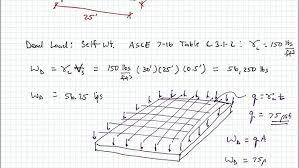 25'
Dead Load: Self-Wt. ASCE 7-16 Table C3.1-2: γc = 150 lbs/ft³
W_D = γc V_s = 150 lbs/ft³ (30')(25')(0.5') = 56,250 lbs
W_D = 56.25 kips
q = γc t
q = 75 psf
W_D = q A
W_D = 75 p